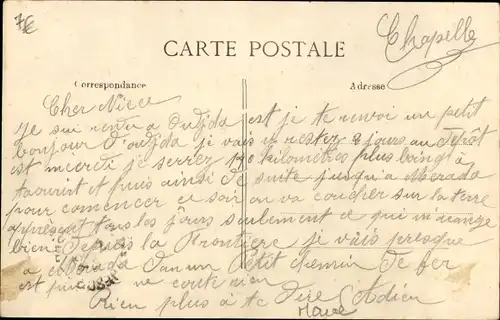 7€
Chapelle
CARTE POSTALE
Correspondance
Adresse
Cher Niece
Je sui rendu a Oudjda est je te renvoi un petit
bonjour d'oudjda je vais y rester 2 jours au Dépôt
est mercredi je serrez kilomètres plus loingt à
taourirt et puis ainsi de suite jusqu'a Merada
pour comencer ce soir on va coucher sur la terre
apresent tous les jours seulement ce qui m'arange
bien Depuis la Frontiere je vais presque
a Merada dan un Petit chemin de fer
est ne coute rien
Rien plus à te dire Adieu